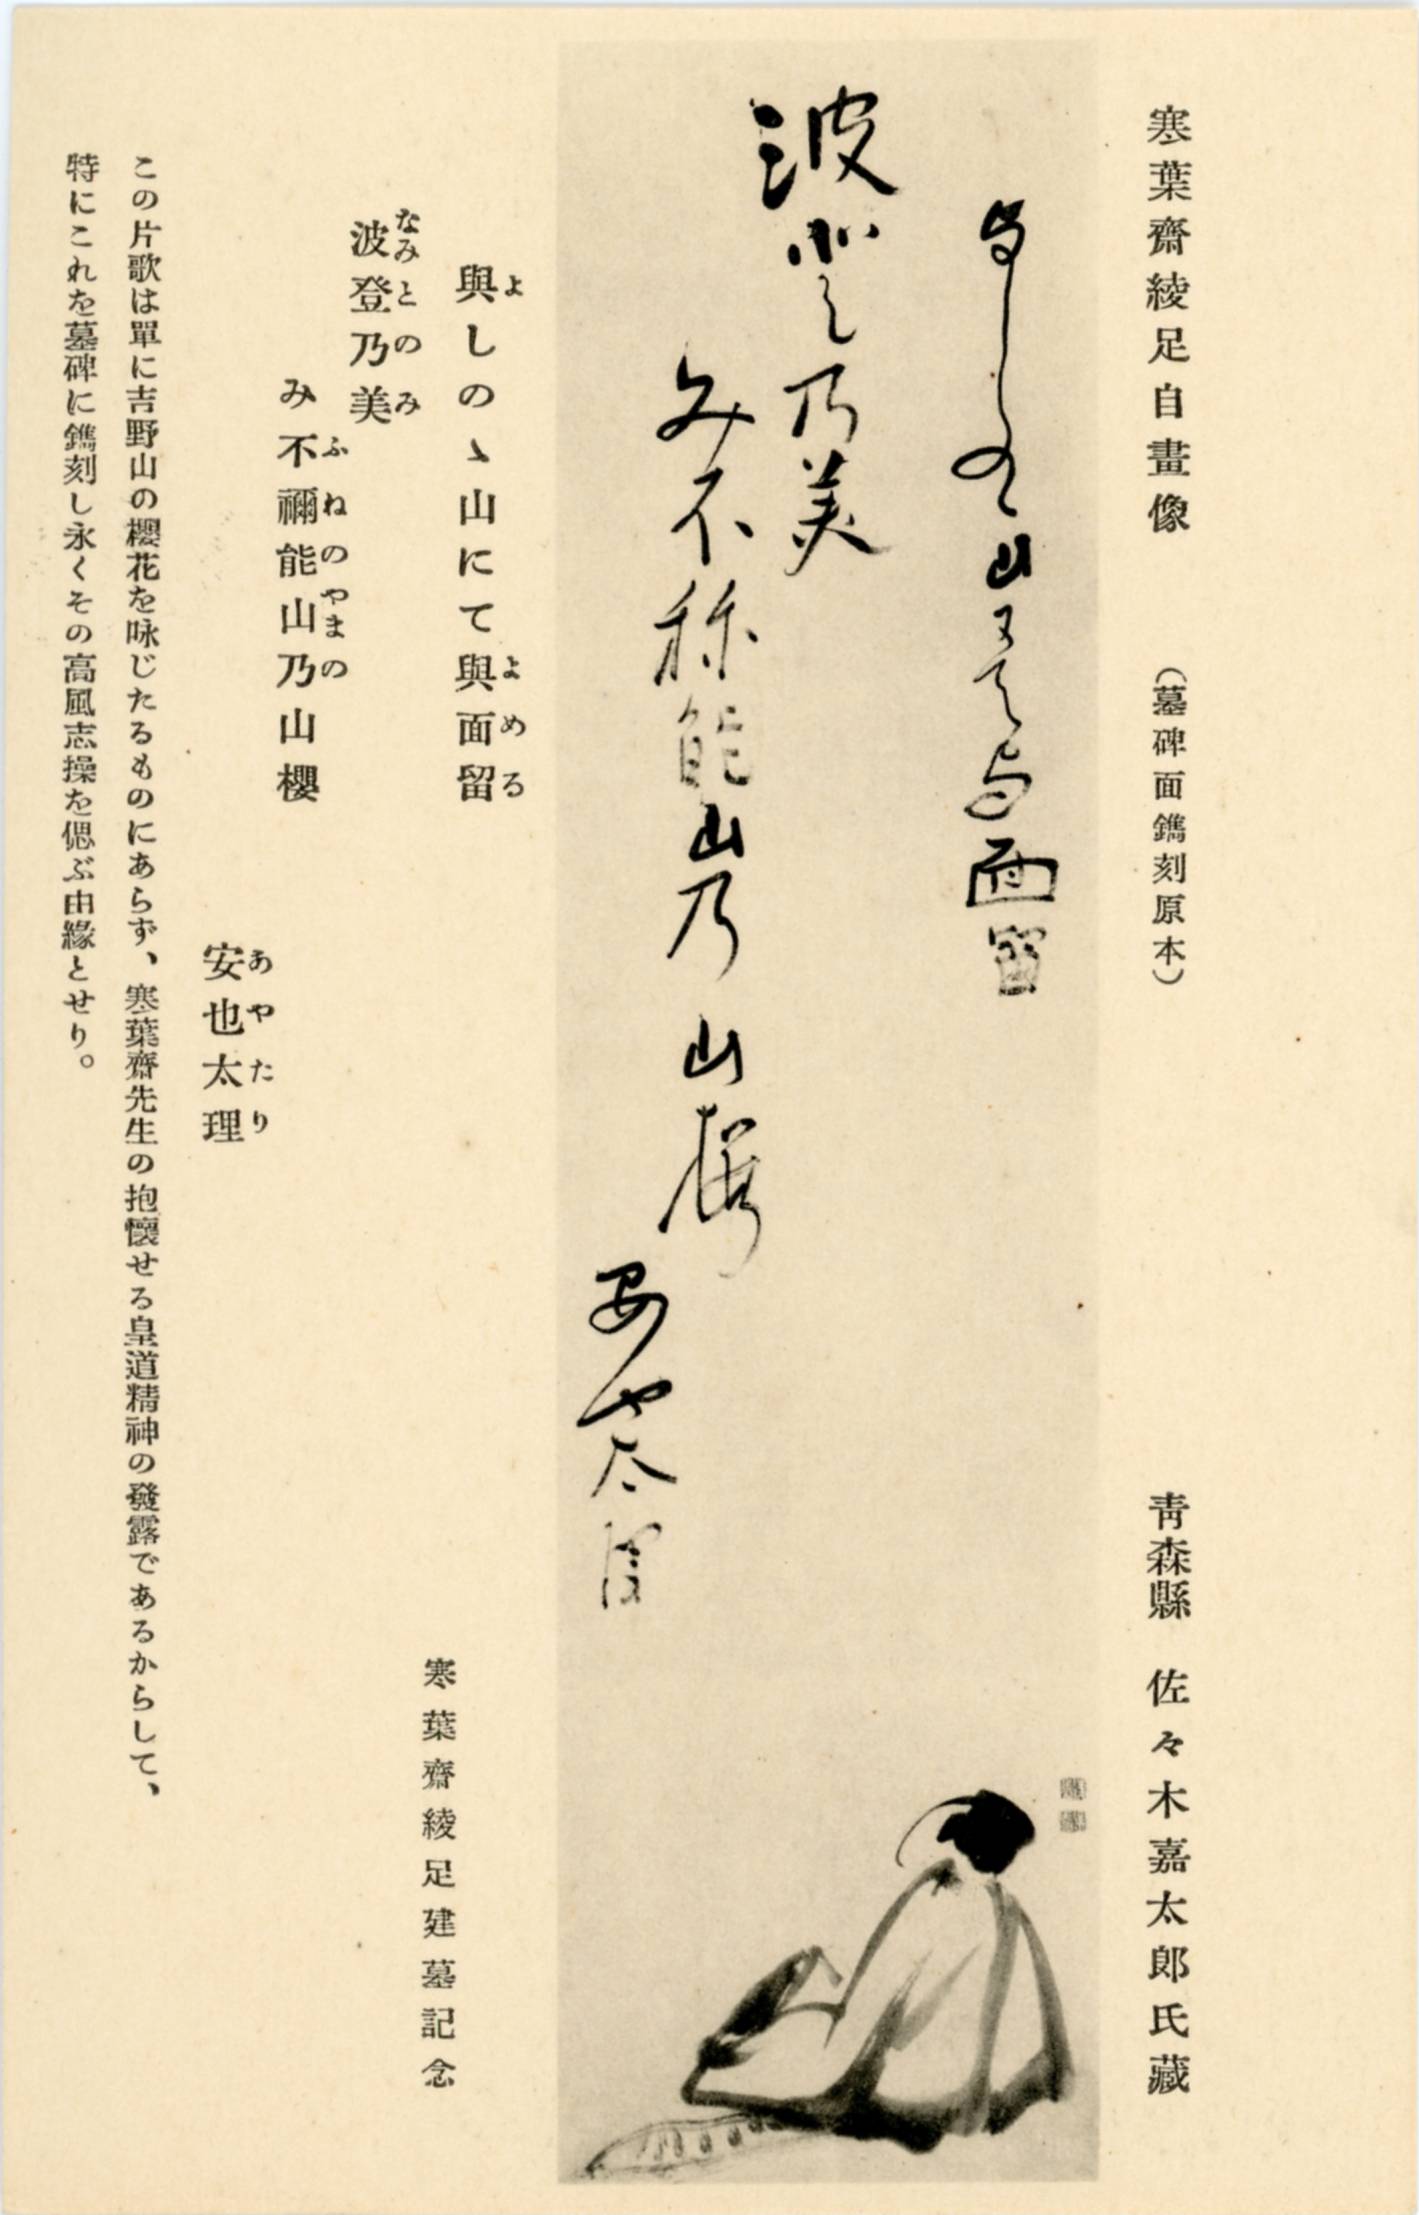 寒葉齋綾足自畫像 (墓碑面鐫刻原本) 青森縣 佐々木嘉太郎氏藏
与しのゝ山にて与面留
波登乃美
み不祢能山乃山桜
安也太理
與しのゝ山にて與面留
よ よめる
波登乃美
なみとのみ
み不禰能山乃山櫻
ふねのやまの
安也太理
あやたり
寒葉齋綾足建墓記念
この片歌は單に吉野山の櫻花を咏じたるものにあらず、寒葉齋先生の抱懷せる皇道精神の發露であるからして、
特にこれを墓碑に鐫刻し永くその高風志操を偲ぶ由緣とせり。